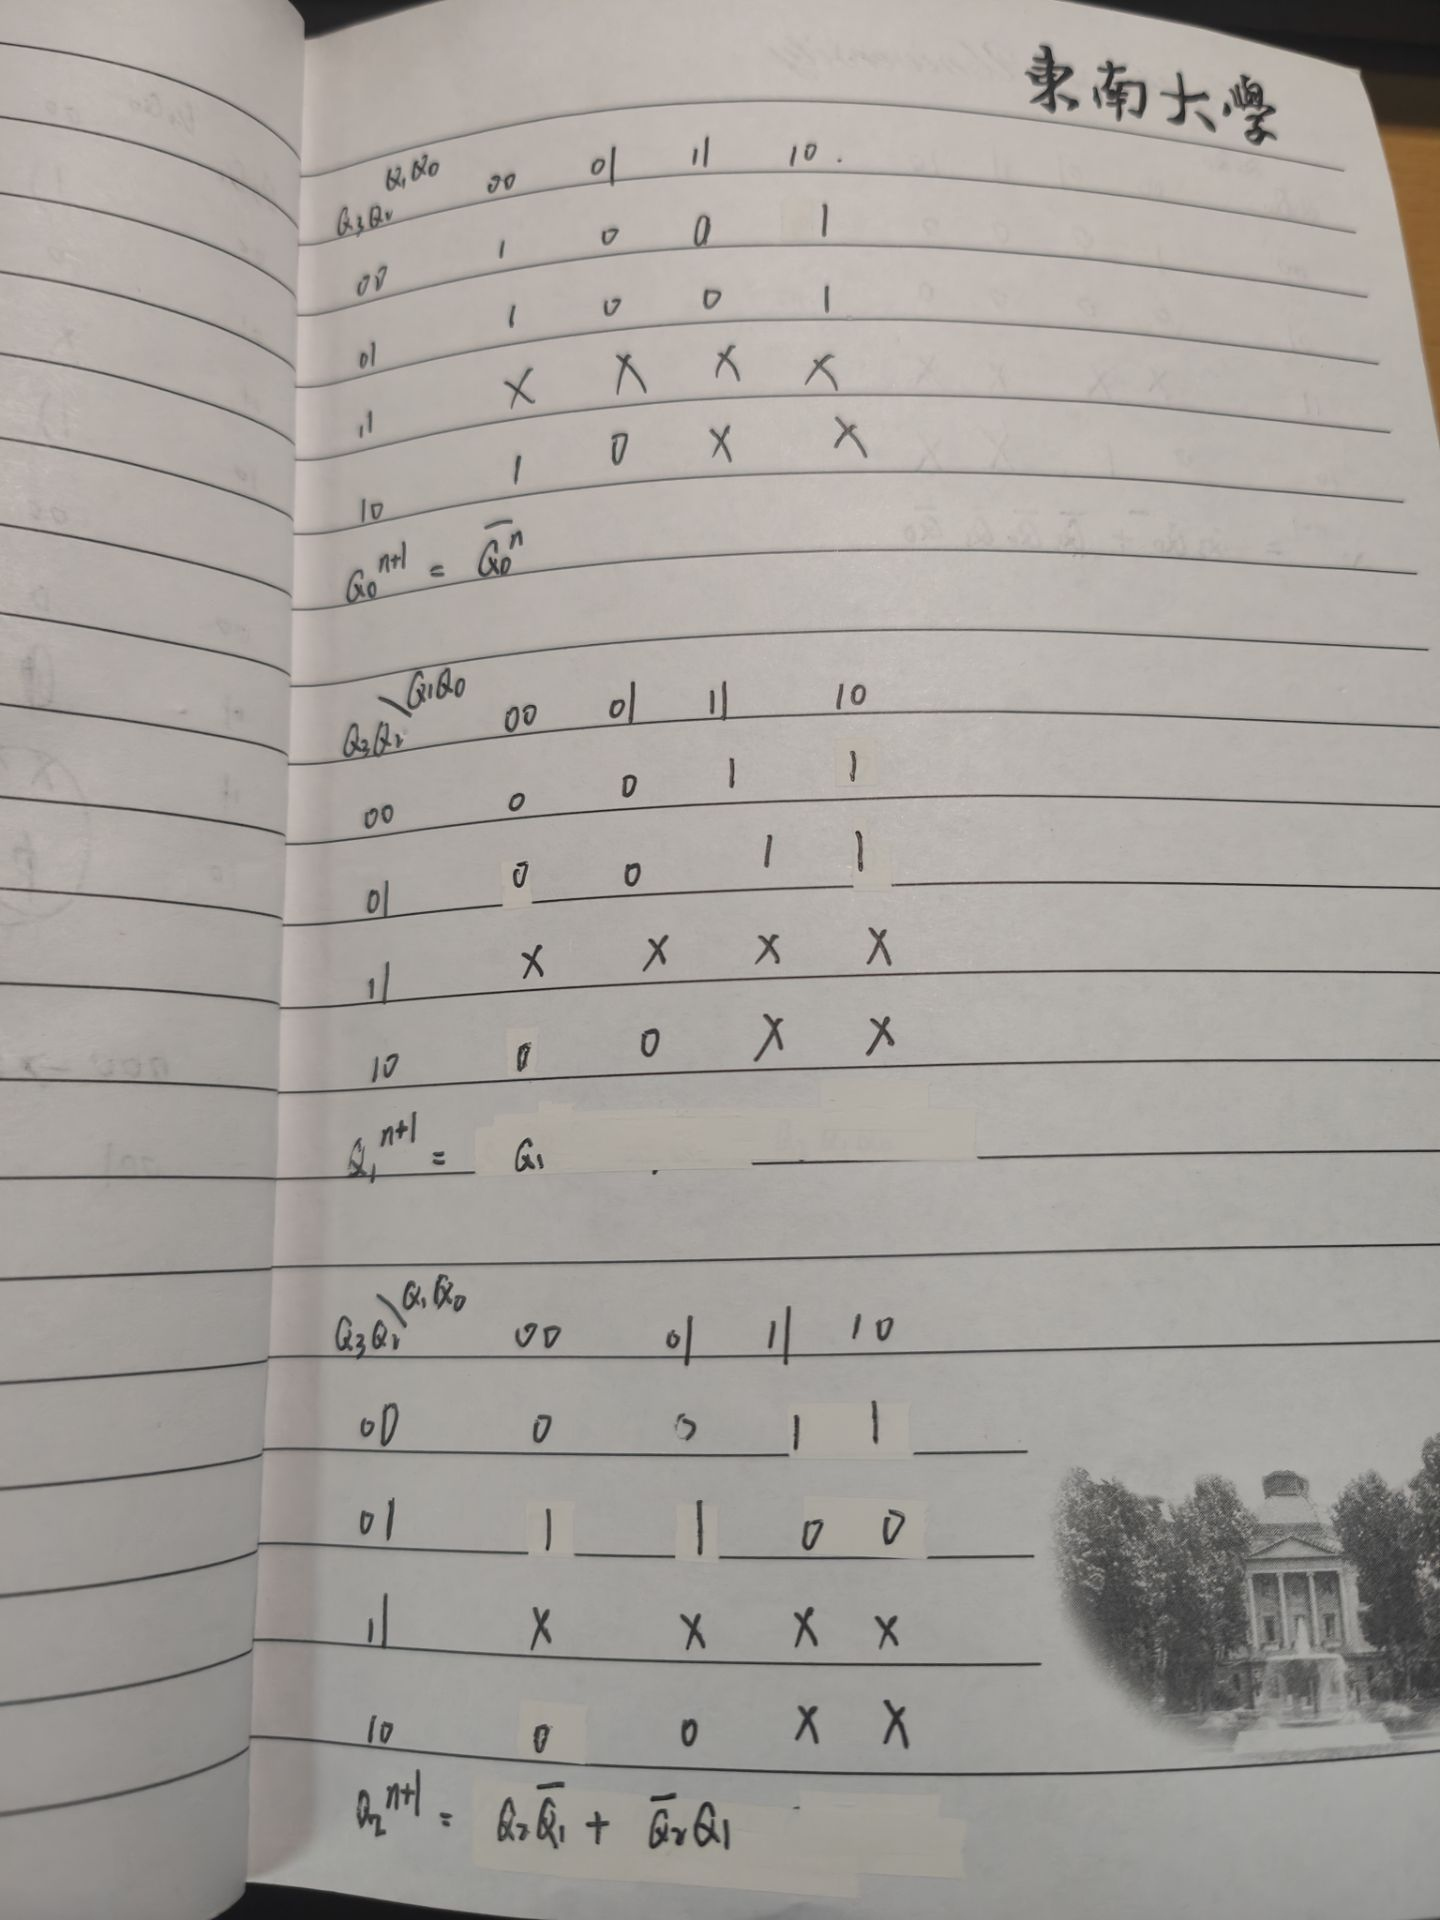 東南大學
Q₁Q₀ 00 01 11 10
Q₃Q₂
00 1 0 0 1
01 1 0 0 1
11 X X X X
10 1 0 X X
Q₀ⁿ⁺¹ = Q̅₀ⁿ
Q₃Q₂\Q₁Q₀ 00 01 11 10
00 0 0 1 1
01 0 0 1 1
11 X X X X
10 0 0 X X
Q₁ⁿ⁺¹ = Q₁
Q₃Q₂\Q₁Q₀ 00 01 11 10
00 0 0 1 1
01 1 1 0 0
11 X X X X
10 0 0 X X
Q₂ⁿ⁺¹ = Q₂Q̅₁ + Q̅₂Q₁